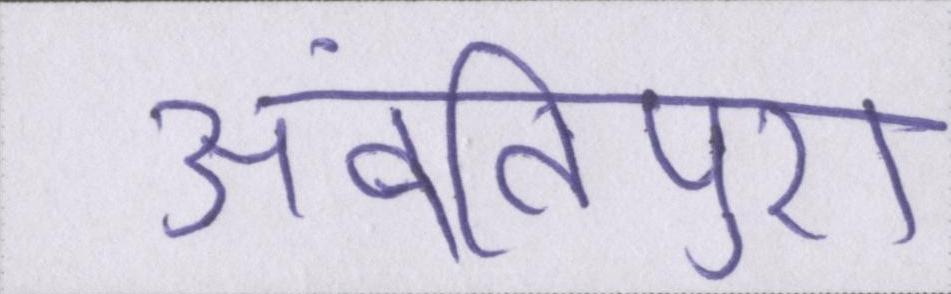 अंवतिपुरा